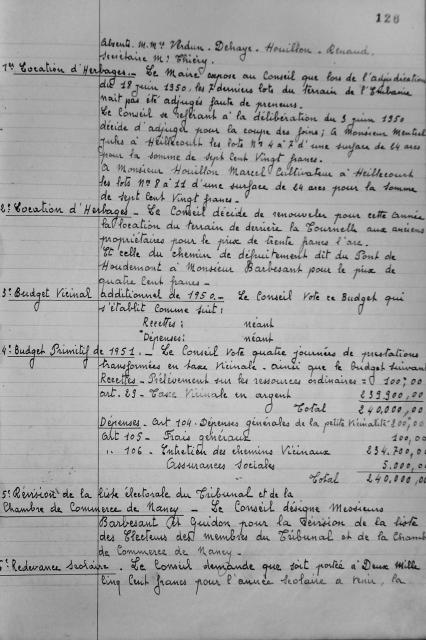 126
Absents. M.Mrs Verdun - Dehaye - Houillon - Renaud.
Secrétaire Mr Thiéry.
1º Location d'Herbages. - Le Maire expose au Conseil que lors de l'adjudication
du 18 juin 1950, les 7 derniers lots du terrain de l'Embanie
n'ait pas été adjugés faute de preneurs.
Le Conseil se référant à la délibération du 3 juin 1950
décide d'adjuger pour la coupe des foins; à Monsieur
Jules à Heillecourt les lots Nos 4 à 7 d'une surface de 24 ares
pour la somme de sept cent vingt francs.
A Monsieur Houillon Marcel Cultivateur à Heillecourt
les lots Nos 8 à 11 d'une surface de 24 ares pour la somme
de sept Cent Vingt francs.
2º Location d'Herbages - Le Conseil décide de renouveler pour cette année
la location du terrain de derrière la Tournelle aux anciens
propriétaires pour le prix de trente francs l'are.
Et celle du chemin de défruitement dit du Pont de
Houdemont à Monsieur Barbesant pour le prix de
quatre Cent francs -
3º Budget Vicinal additionnel de 1950. - Le Conseil Vote ce Budget qui
s'établit comme suit:
Recettes: néant
Dépenses: néant
4º Budget Primitif de 1951. - Le Conseil Vote quatre journées de prestations
transformées en taxe Vicinale - ainsi que le budget suivant
Recettes - Prélèvement sur les ressources ordinaires = 100,00
art. 23 - Taxe Vicinale en argent 239.900,00
Total 240.000,00
Dépenses - Art 104 - Dépenses générales de la petite Vicinalité 200,00
Art 105 - Frais généraux 100,00
" 106 - Entretien des chemins Vicinaux 234.700,00
Assurances sociales 5.000,00
Total 240.000,00
5º Révision de la liste électorale du Tribunal et de la
Chambre de Commerce de Nancy - Le Conseil désigne Messieurs
Barbesant et Guidon pour la Révision de la liste
des Electeurs des membres du Tribunal et de la Chamb
de Commerce de Nancy -
Redevance scolaire. Le Conseil demande que soit portée à Deux Mille
Cinq Cent francs pour l'année scolaire à venir, la